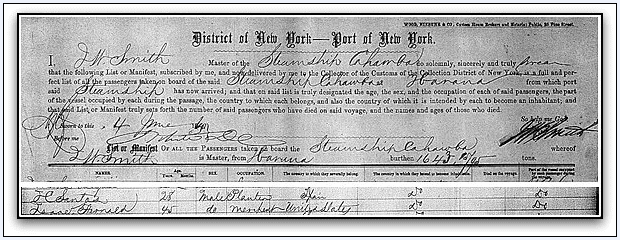 WOOD, NIEBUHR & CO., Custom House Brokers and Notaries Public, 26 Pine Street.
District of New York—Port of New York.
I, J W Smith Master of the Steamship Cahawba do solemnly, sincerely and truly swear
that the following List or Manifest, subscribed by me, and now delivered by me to the Collector of the Customs of the Collection District of New York, is a full and per-
fect list of all the passengers taken on board of the said Steamship Cahawba Havana from which port
said Steamship has now arrived; and that on said list is truly designated the age, the sex, and the occupation of each of said passengers, the part
of the vessel occupied by each during the passage, the country to which each belongs, and also the country of which it is intended by each to become an inhabitant; and
that said List or Manifest truly sets forth the number of said passengers who have died on said voyage, and the names and ages of those who died.
Sworn to this 4 So help me God
Before me
List or Manifest OF ALL THE PASSENGERS taken on board the Steamship Cahawba whereof
J W Smith is Master, from Havana burthen 1643 tons.
NAMES. Age. Years. Months. SEX. OCCUPATION. The country to which they severally belong. The country in which they intend to become inhabitants. Died on the voyage. Part of the vessel occupied by each passenger during the voyage.
28 Male Planter Spain Do Do
45 do merchant United States Do Do